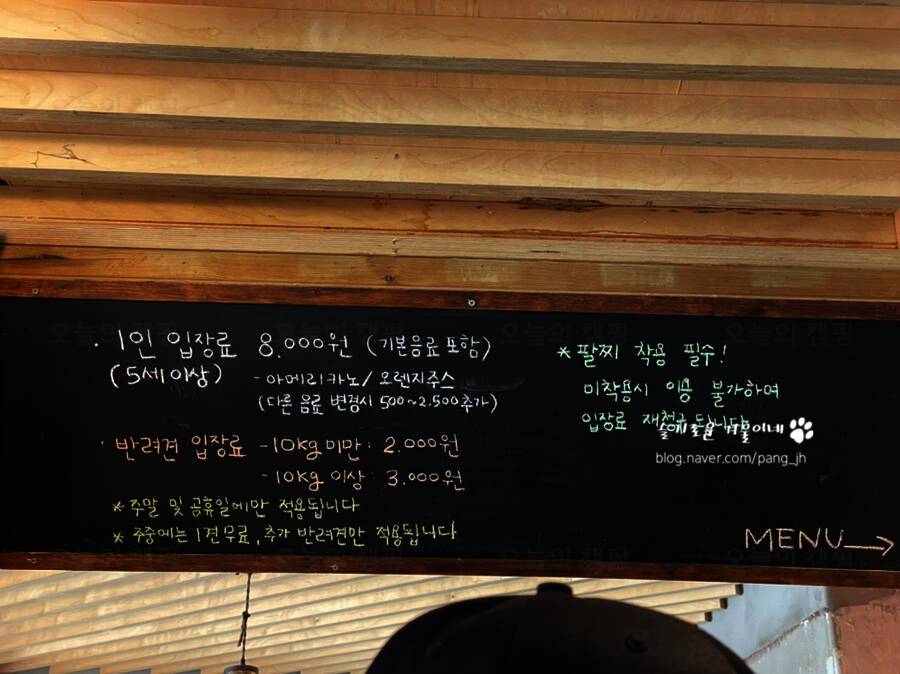 · 1인 입장료 8.000원 (기본음료 포함)
(5세 이상)
- 아메리카노/오렌지주스
(다른 음료 변경시 500~2.500추가)
· 반려견 입장료 - 10kg 미만 : 2.000원
- 10kg 이상 : 3.000원
* 주말 및 공휴일에만 적용됩니다
* 주중에는 1견무료, 추가 반려견만 적용됩니다
* 팔찌 착용 필수!
미착용시 이용 불가하며
입장료 재청구 됩니다
겨울이네
blog.naver.com/pang_jh
MENU →
오늘의 캠핑